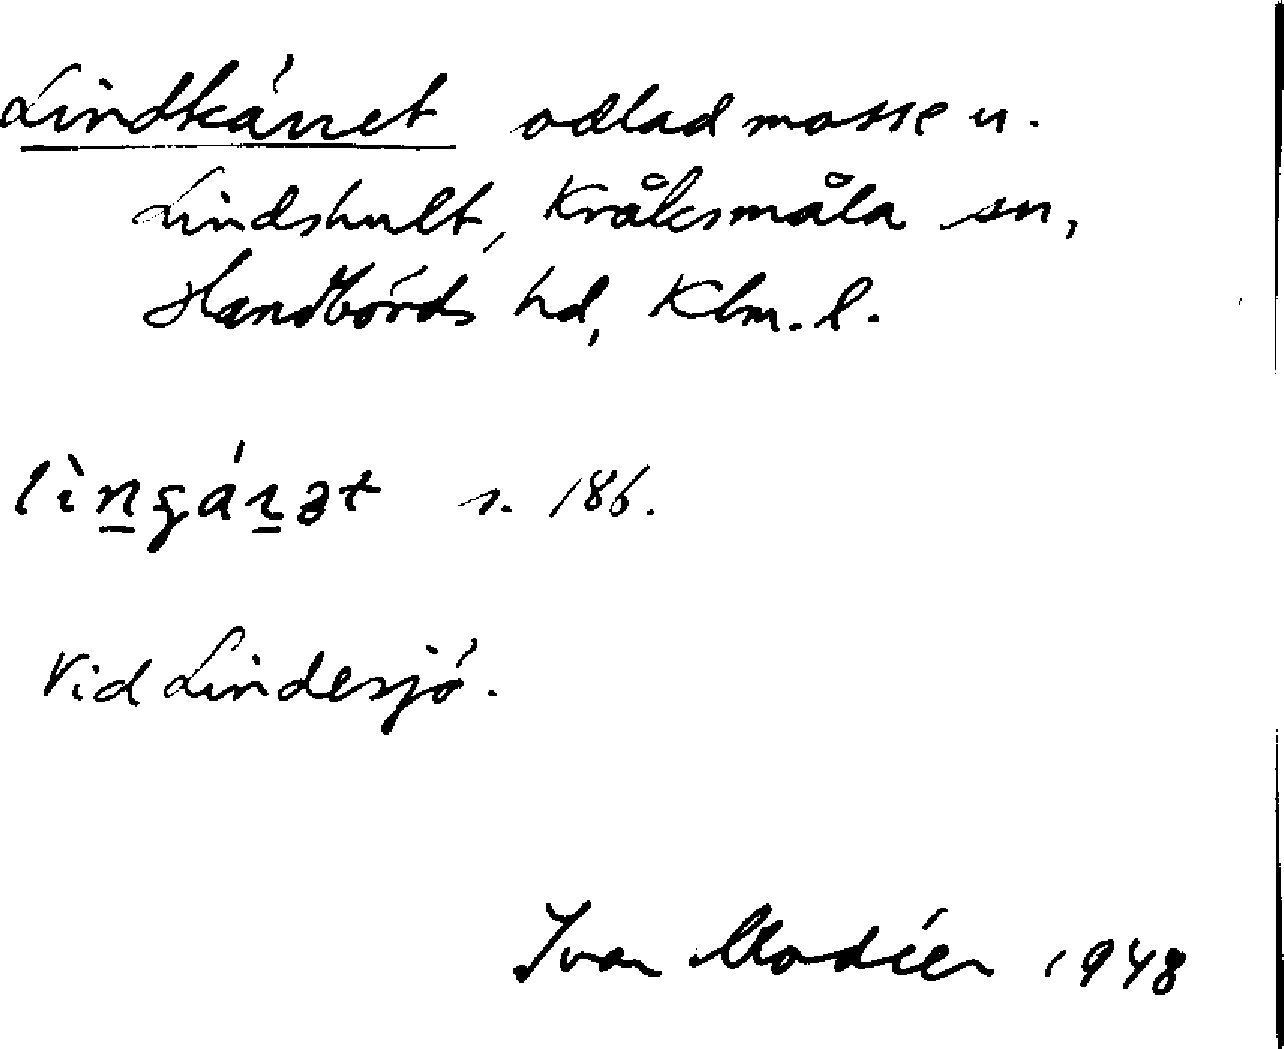 Lindkärret odlad mosse u.
Lindshult, Kråksmåla sn,
Handbörds hd, Klm. l.
s. 186.
Vid Lindesjö.
Ivar Modéer 1948